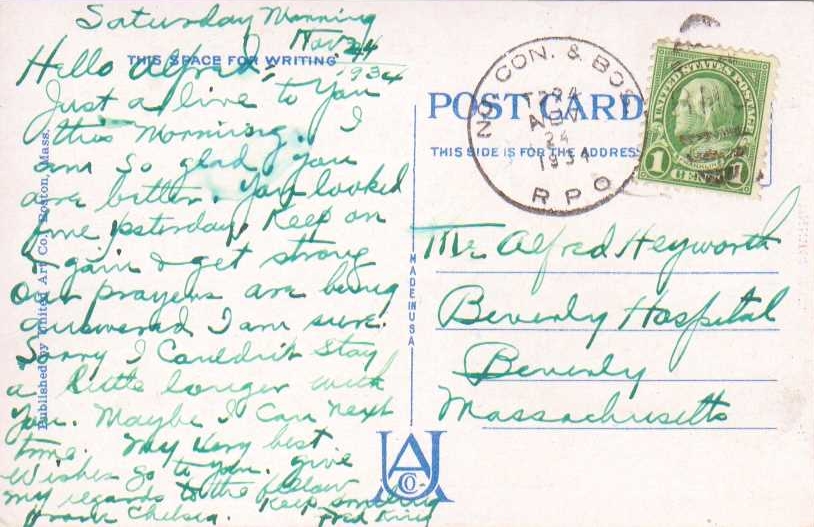 Saturday Morning
Nov 24
1934
THIS SPACE FOR WRITING
Hello Alfred:
Just a line to you
this Morning. I
am so glad you
are better. You looked
fine yesterday. Keep on
& gain & get strong
Our prayers are being
answered I am sure.
Sorry I Couldn't Stay
a little longer with
you. Maybe I Can next
time. My very best
Wishes go to you. give
my regards to the fellow
from Chelsea. Keep smiling
Fred King
Published by United Art Co., Boston, Mass.
MADE IN USA
UACo
POST CARD
THIS SIDE IS FOR THE ADDRESS
CON. & BOS
24
1934
R P O
UNITED STATES POSTAGE
FRANKLIN
1 CENT 1
Mr Alfred Heyworth
Beverly Hospital
Beverly
Massachusetts